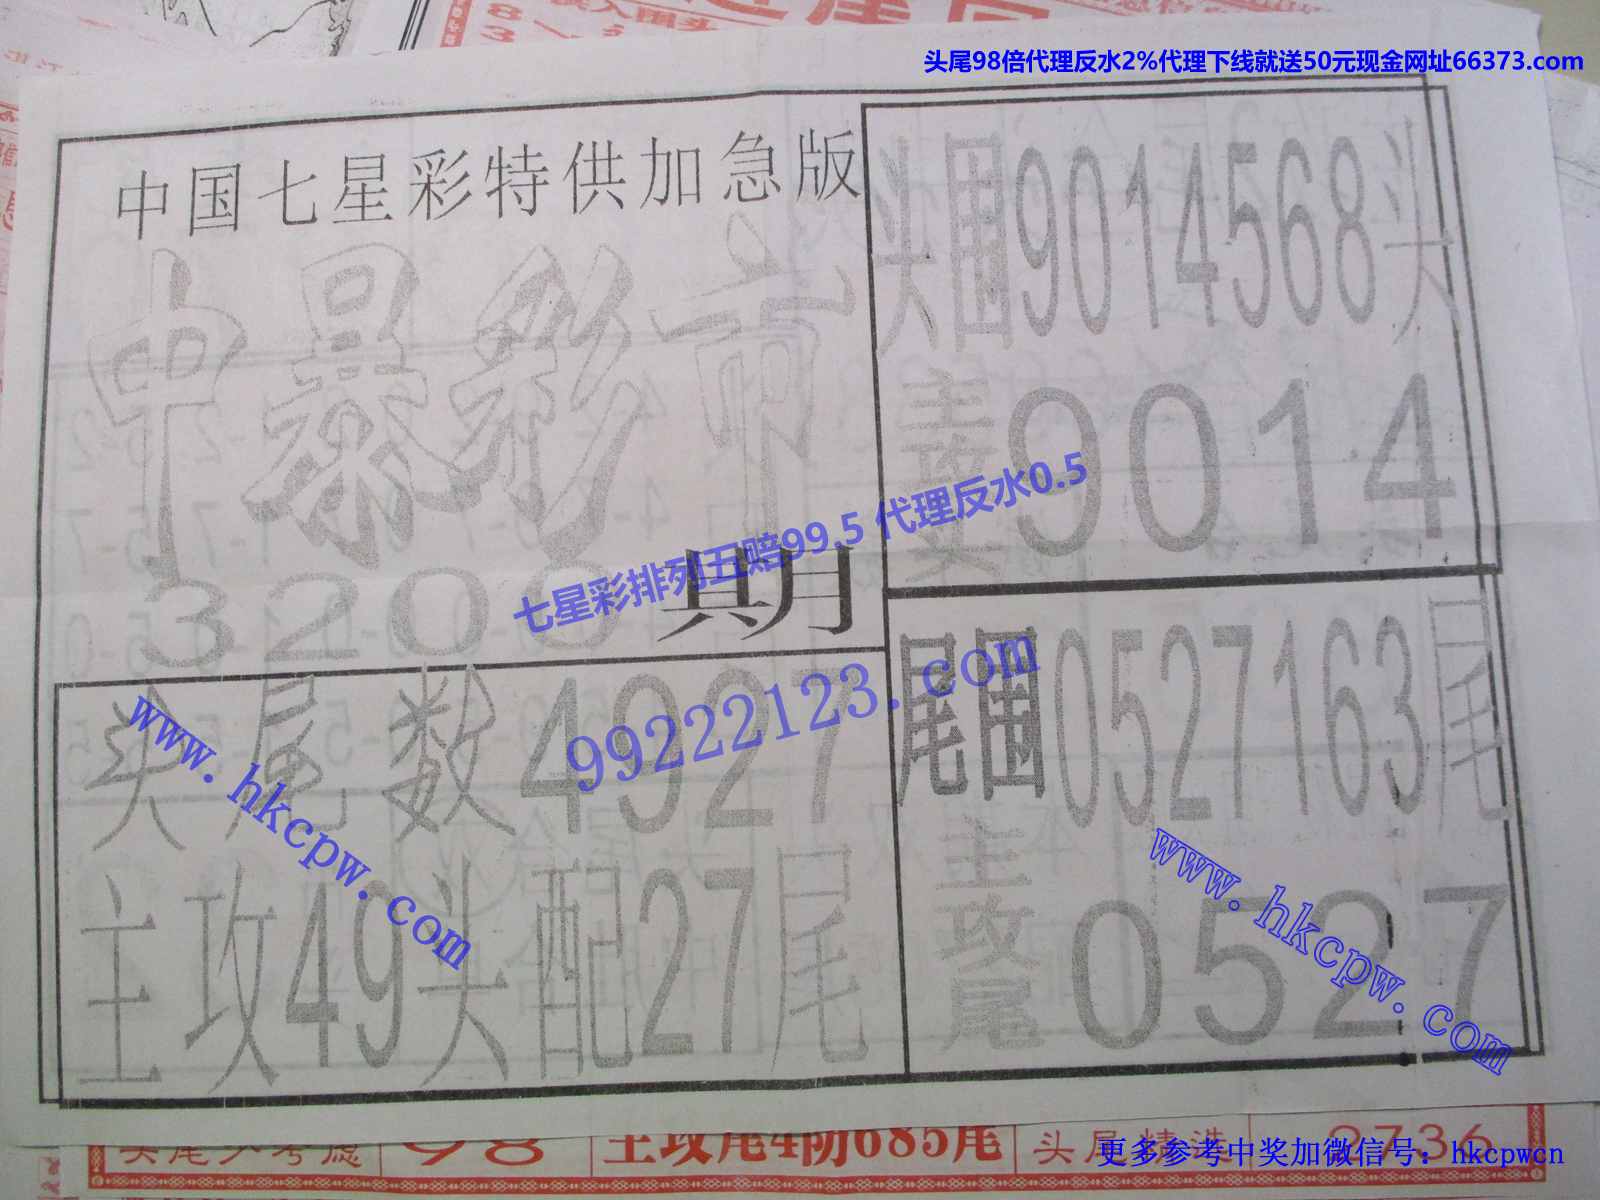 头尾98倍代理反水2%代理下线就送50元现金网址66373.com
中国七星彩特供加急版
中暴彩市
期
头尾数4927
主攻49头配27尾
头围9014568头
主攻头
9014
尾围0527163尾
主攻尾
0527
七星彩排列五赔99.5 代理反水0.5
99222123.com
www.hkcpw.com
www.hkcpw.com
98
主攻尾4防685尾
头尾精选
2736
更多参考中奖加微信号：hkcpwcn